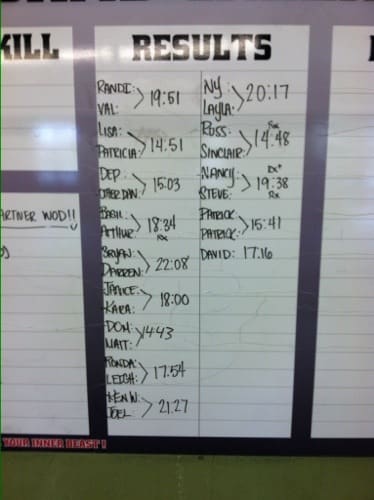 KILL
RESULTS
RANDI:
VAL:
19:51
LISA:
PATRICIA:
14:51
DEP:
OTHER DAN:
15:03
BASIL
ARTHUR:
18:34
Rx
BRYAN:
DARREN:
22:08
JANICE
KARA:
18:00
DOM:
MATT:
14:43
RONDA:
LEIGH:
17:54
KEN W.
JOEL:
21:27
NY:
LAYLA:
20:17
RUSS:
SINCLAIR:
Rx
14:48
NANCY:
STEVE:
Rx+
19:38
Rx
PATRICK
PATRICK:
15:41
DAVID: 17:16
PARTNER WOD!!
YOUR INNER BEAST!